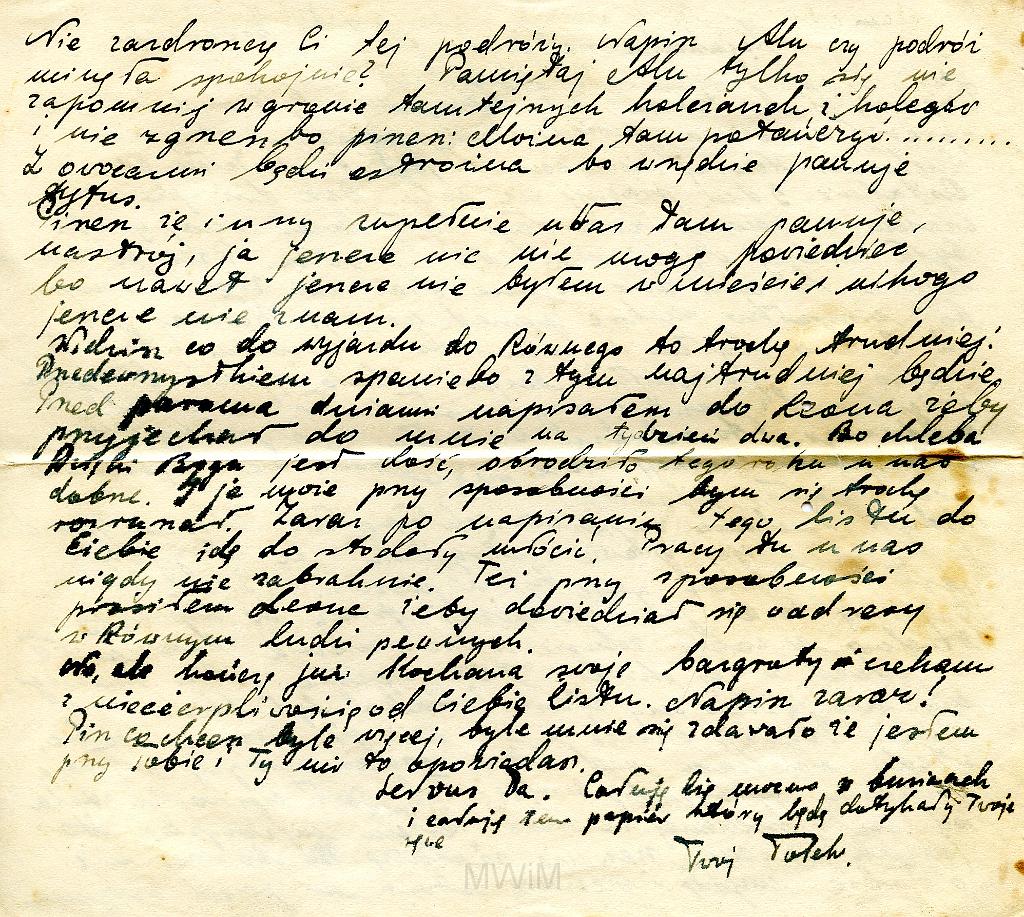 Nie zazdroszczę Ci tej podróży. Napisz Alu czy podróż
minęła spokojnie? Pamiętaj Alu tylko się nie
zapomnij w gronie tamtejszych koleżanek i kolegów
i nie zgnen bo piszesz: Można tam potańczyć..........
Z owocami bądź ostrożna bo wszędzie panuje
tytus.
Piszesz że inny zupełnie u Was tam panuje,
nastrój, ja jeszcze nic nie mogę powiedzieć
bo nawet jeszcze nie byłem w mieście i nikogo
jeszcze nie znam.
Widzisz co do wyjazdu do Równego to trochę trudniej.
Przedewszystkiem spanie bo z tym najtrudniej będzie
Przed paroma dniami napisałem do żeby
przyjechał do mnie na tydzień dwa. Bo chleba
Dzięki Boga jest dość, obrodziło tego roku u nas
dobrze. I ja może przy sposobności bym się trochę
rozruszał. Zaraz po napisaniu tego listu do
Ciebie idę do stodoły młócić. Pracy tu u nas
nigdy nie zabraknie. Też przy sposobności
prosiłem żeby dowiedział się o adresy
w Równym ludzi pewnych.
No, ale kończę już Kochana swoje bazgroły i czekam
z niecierpliwością od Ciebie listu. Napisz zaraz!
Pisz co chcesz byle więcej, byle mnie się zdawało że jestem
przy Tobie i Ty mi to opowiadasz.
Serwus Pa. Całuję Cię mocno w buziaczek
i całuję ten papier który będą dotykały Twoje
ręce
Twój Tolek.
MWiM